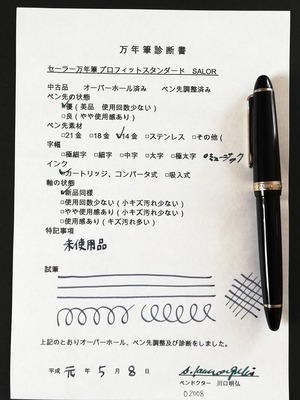 万年筆診断書
セーラー万年筆 プロフィットスタンダード SALOR
中古品 オーバーホール済み ペン先調整済み
ペン先の状態
☑優(美品 使用回数少ない)
□良(やや使用感あり)
ペン先素材
□21金 □18金 ☑14金 □ステンレス □その他(
字幅
□極細字 □細字 □中字 □太字 □極太字 oミュージック
インク
☑カートリッジ、コンバータ式 □吸入式
軸の状態
☑新品同様
□使用回数少ない(小キズ汚れ少ない)
□やや使用感あり(小キズ汚れ少ない)
□使用感あり(キズ汚れ多い)
特記事項
未使用品
試筆
上記のとおりオーバーホール、ペン先調整及び診断をしました。
平成 元年 5月 8日
ペンドクター 川口明弘
D2008